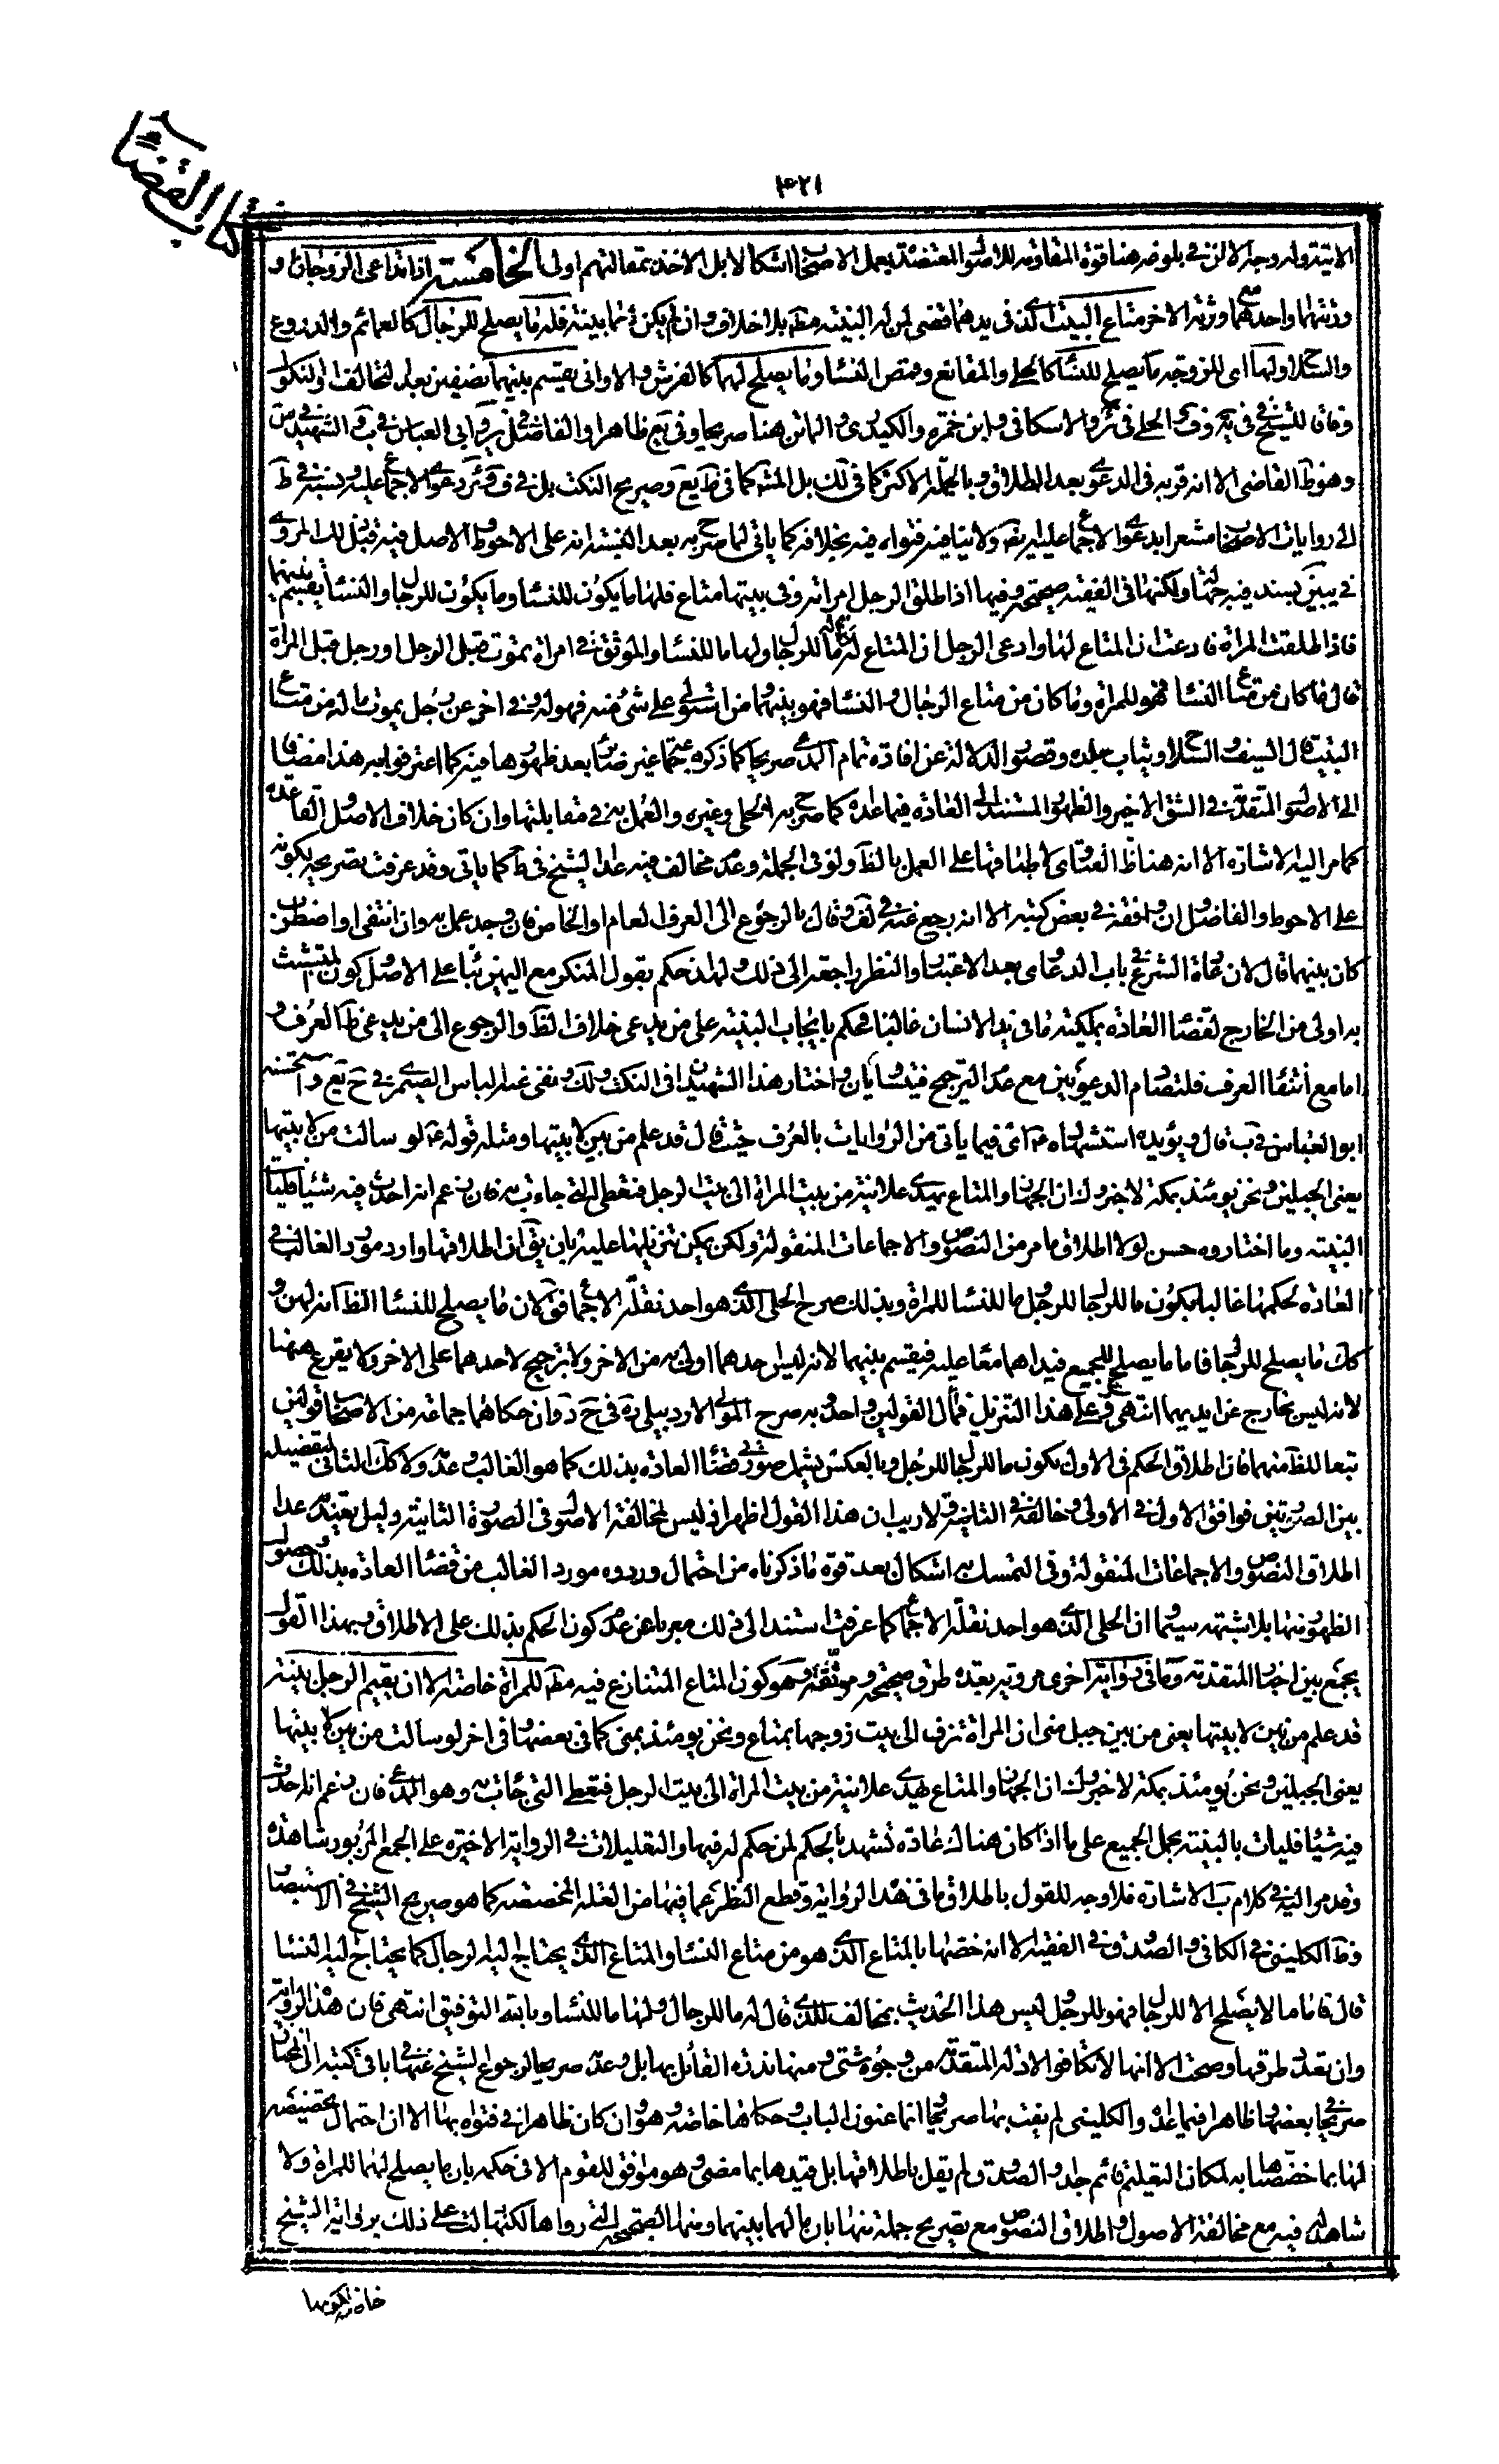 كتاب القضاء
۴۲۱
الاتية وله وجه الا ان في بلوغه هنا قوة المقاومة للاصول المعتضدة بعمل الاصحاب اشكالا بل الاخذ بمقالتهم اولى الخامسة اذا تداعى الزوجان و
ورثتهما واحدهما مع ورثة الاخر متاع البيت الذي في يدهما قضى لمن له البينة مطلقا بلا خلاف وان لم يكن ثمة بينة فله ما يصلح للرجال كالعمائم والدروع
والسلاح ولها اى للزوجة ما يصلح للنساء كالحلي والمقانع وقمص النساء وما يصلح لهما كالفرش والاواني يقسم بينهما نصفين بعد التحالف او النكول
وفاقا للشيخ في يه وف والحلي في ئر والاسكافي وابن حمزة والكيدري والماتن هنا صريحا وفي يع ظاهرا والفاضل في ير وابي العباس في ب والشهيد في س
وهو ظ الفاضي الا انه قربه في الدعوى بعد الطلاق وبالجملة الاكثر كما في لك بل المشهور كما في ظ يع وصريح النكت بل في ف وئر دعوى الاجماع عليه ونسبه في ط
الى روايات الاصحاب مشعرا بدعوى الاجماع عليه ولا ينافيه فتواه فيه بخلافه كما ياتي لما صرح به بعد الفتيا انه على الاحوط والاصل فيه قبل ذلك المروي
في يبين بسند فيه جهالة ولكنها في الفقيه صحيحة وفيها اذا طلق الرجل امراته وفي بيتها متاع فلها ما يكون للنساء وما يكون للرجال والنساء يقسم بينهما
فاذا طلقت المراة فادعت ان المتاع لها وادعى الرجل ان المتاع له كان له ما للرجال ولها ما للنساء والموثق في امراة تموت قبل الرجل او رجل قبل المراة
قال ما كان من متاع النساء فهو للمراة وما كان من متاع الرجال والنساء فهو بينهما ومن استولى على شئ منه فهو له وفي اخر عن رجل يموت ما له من متاع
البيت قال السيف والسلاح وثياب جلده وقصور الدلالة عن افادة تمام المدعى صريحا كما ذكره جماعة غير ضائر بعد ظهورها فيه كما اعترفوا به هذا مضافا
الى الاصول المتقدمة في الشق الاخير والظهور المستند الى العادة فيما عداه كما صرح به الحلي وغيره والعمل به في مقابلتها وان كان خلاف الاصل القاعدة
كما مر اليه الاشارة الا انه هنا ظ الفتاوى لاطباقها على العمل بالظ ولو في الجملة وعدم مخالف فيه عدا الشيخ في ط كما ياتي وقد عرفت تصريحه بكونه
على الاحوط والفاضل وان وافقه في بعض كتبه الا انه رجع عنه في لف وقال بالرجوع الى العرف العام او الخاص فان وجد عمل به وان انتفى او اضطرب
كان بينهما قال لان عادة الشرع في باب الدعاوى بعد الاعتبار والنظر راجعة الى ذلك ولهذا حكم بقول المنكر مع اليمين بناء على الاصل وكون المتشبث
به اولى من الخارج لقضاء العادة بملكية ما في يد الانسان غالبا فحكم بايجاب البينة على من يدعي خلاف الظ والرجوع الى من يدعي ظ العرف و
اما مع انتفاء العرف فلتصادم الدعويين مع عدم الترجيح فيتساويان واختار هذا الشهيدان في النكت ولك ونفى عنه الباس الصيمري في ح يع واستحسنه
ابو العباس في ب قال ويؤيده استشهاده ع اى فيما ياتي من الروايات بالعرف حيث قال قد علم من بين لابيتها ومثله قوله ع لو سالت من بين لابيتها
يعني الجبلين ونحن يومئذ بمكة لاخبروك ان الجهاز والمتاع يهدى علانية من بيت المراة الى بيت الرجل فتعطى التي جاءت به فان زعم انه احدث فيه شيئا فليات
البينة وما اختاروه حسن لولا اطلاق ما مر من النصوص والاجماعات المنقولة ولكن يمكن تنزيلها عليه بان يق ان اطلاقها وارد مورد الغالب في
العادة لحكمها غالبا بكون ما للرجال للرجل وما للنساء للمراة وبذلك صرح الحلي الذي هو احد نقلة الاجماع فق لان ما يصلح للنساء الظ انه لهن و
كك ما يصلح للرجال فاما ما يصلح للجميع فيداهما معا عليه فيقسم بينهما لانه ليس احدهما اولى به من الاخر ولا ترجيح لاحدهما على الاخر ولا يقرع ههنا
لانه ليس بخارج عن ايديهما انتهى وعلى هذا التنزيل فمآل القولين واحد وبه صرح المولى الاردبيلي ره في ح د وان حكاهما جماعة من الاصحاب قولين
تبعا للظ منهما فان اطلاق الحكم في الاول بكون ما للرجال للرجل وبالعكس يشمل صورتي قضاء العادة بذلك كما هو الغالب وعدمه ولا كك الثاني لتفصيله
بين الصورتين فوافق الاول في الاولى وخالفه في الثانية ولا ريب ان هذا القول اظهر اذ ليس لمخالفة الاصول في الصورة الثانية دليل يعتد به عدا
اطلاق النصوص والاجماعات المنقولة وفي التمسك به اشكال بعد قوة ما ذكرناه من احتمال وروده مورد الغالب من قضاء العادة بذلك وحصول
الظهور منها بلا شبهة سيما وان الحلي الذي هو احد نقلة الاجماع كما عرفت استند الى ذلك معربا عن عدم كون الحكم بذلك على الاطلاق وبهذا القول
يجمع بين اخبار المتقدمة وما في رواية اخرى مروية بعدة طرق صحيحة وموثقة وهو كون المتاع المتنازع فيه مطلقا للمراة خاصة الا ان يقيم الرجل بينة
قد علم من بين لابيتها يعني من بين جبل منى ان المراة تزف الى بيت زوجها بمتاع ونحن يومئذ بمنى كما في بعضها وفي اخر لو سالت من بين لابيتها
يعني الجبلين ونحن يومئذ بمكة لاخبروك ان الجهاز والمتاع يهدى علانية من بيت المراة الى بيت الرجل فتعطى التي جاءت به وهو المدعي فان زعم انه احدث
فيه شيئا فليات بالبينة بحمل الجميع على ما اذا كان هناك عادة تشهد بالحكم لمن حكم له فيها والتعليلات في الرواية الاخيرة على الجمع المزبور شاهدة
وقد مر اليه في كلام ب الاشارة فلا وجه للقول باطلاق ما في هذا الرواية وقطع النظر عما فيها من العلة المخصصة كما هو صريح الشيخ في الاستبصار
وظ الكليني في الكافي والصدوق في الفقيه الا انه خصها بالمتاع الذي هو من متاع النساء والمتاع الذي يحتاج اليه الرجال كما يحتاج اليه النساء
قال فاما ما لا يصلح الا للرجال فهو للرجل وليس هذا الحديث بمخالف للذي قال له ما للرجال ولها ما للنساء وبالله التوفيق انتهى فان هذه الرواية
وان تعدد طرقها وصحت الا انها لا تكافؤ الادلة المتقدمة من وجوه شتى ومنها ندرة القائل بها بل وعدمه صريحا لرجوع الشيخ عنها في باقي كتبه الى المختار
صريحا في بعضها وظاهرا فيما عداه والكليني لم يفت بها صريحا وانما عنون الباب وحكاها خاصة وهو وان كان ظاهرا في فتواه بها الا ان احتمال تخصيصه
لها بما خصصناها به لمكان التعليل قائم جدا والصدوق لم يقل باطلاقها بل قيدها بما مضى وهو موافق للقوم الا في حكمه بان ما يصلح لهما للمراة ولا
شاهد له فيه مع مخالفة الاصول واطلاق النصوص مع تصريح جملة منها بان ما لهما بينهما ومنها الصحيحة التي رواها لكنها ليست على ذلك برواية الشيخ